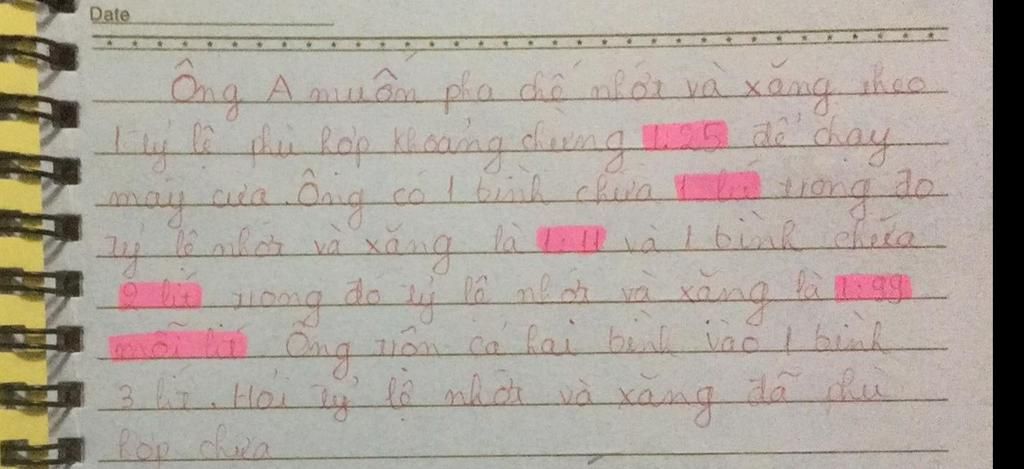 Date
Ông A muốn pha chế nhớt và xăng theo
1 tỷ lệ phù hợp khoảng chừng 1:25 để chạy
máy cưa. Ông có 1 bình chứa 1 lít trong đó
tỷ lệ nhớt và xăng là 1:11 và 1 bình chứa
2 lít trong đó tỷ lệ nhớt và xăng là 1:99
mỗi lít Ông trộn cả hai bình vào 1 bình
3 lít. Hỏi tỷ lệ nhớt và xăng đã phù
hợp chưa